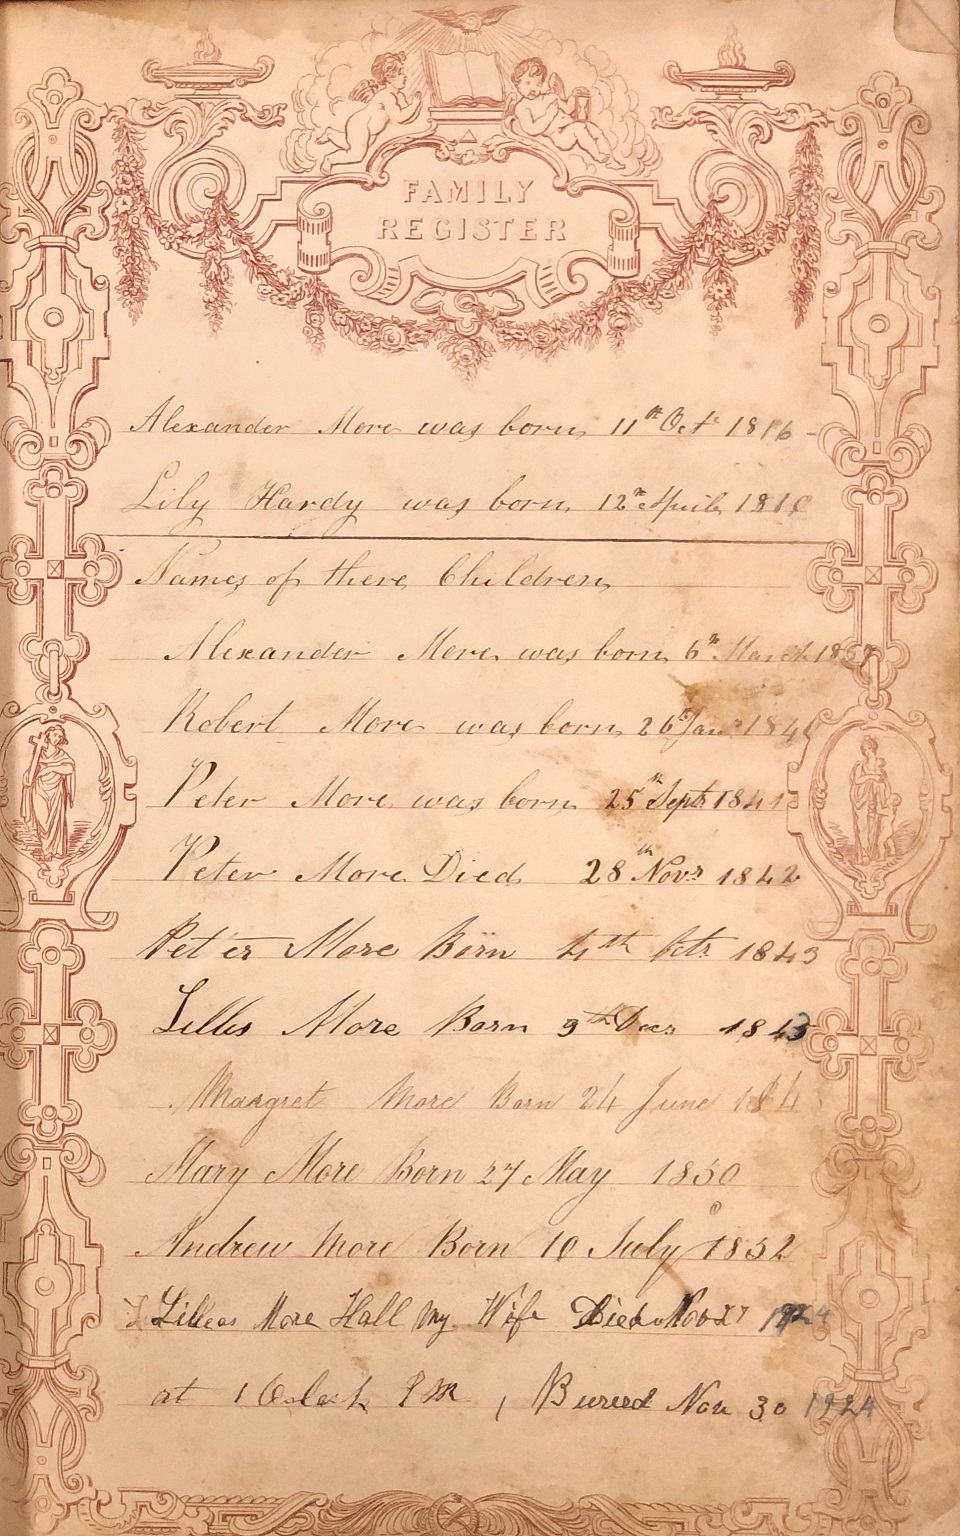 FAMILY
REGISTER
Alexander More was born 11th Octr 1816
Lily Hardy was born 12th April
Names of there Children
Alexander More was born 6th March
Robert More was born 26th Jan
Peter More was born 25th Sept 1841
Peter More Died 28th Novr 1842
Peter More Born 4th Octr 1843
Lilles More Born 9th Decr
Margret More Born 24 June
Mary More Born 27 May 1850
Andrew More Born 10 July 1852
Lilleas More Hall My Wife Died Nov 27 1924
at 1 Oclock P M, Buried Nov 30 1924